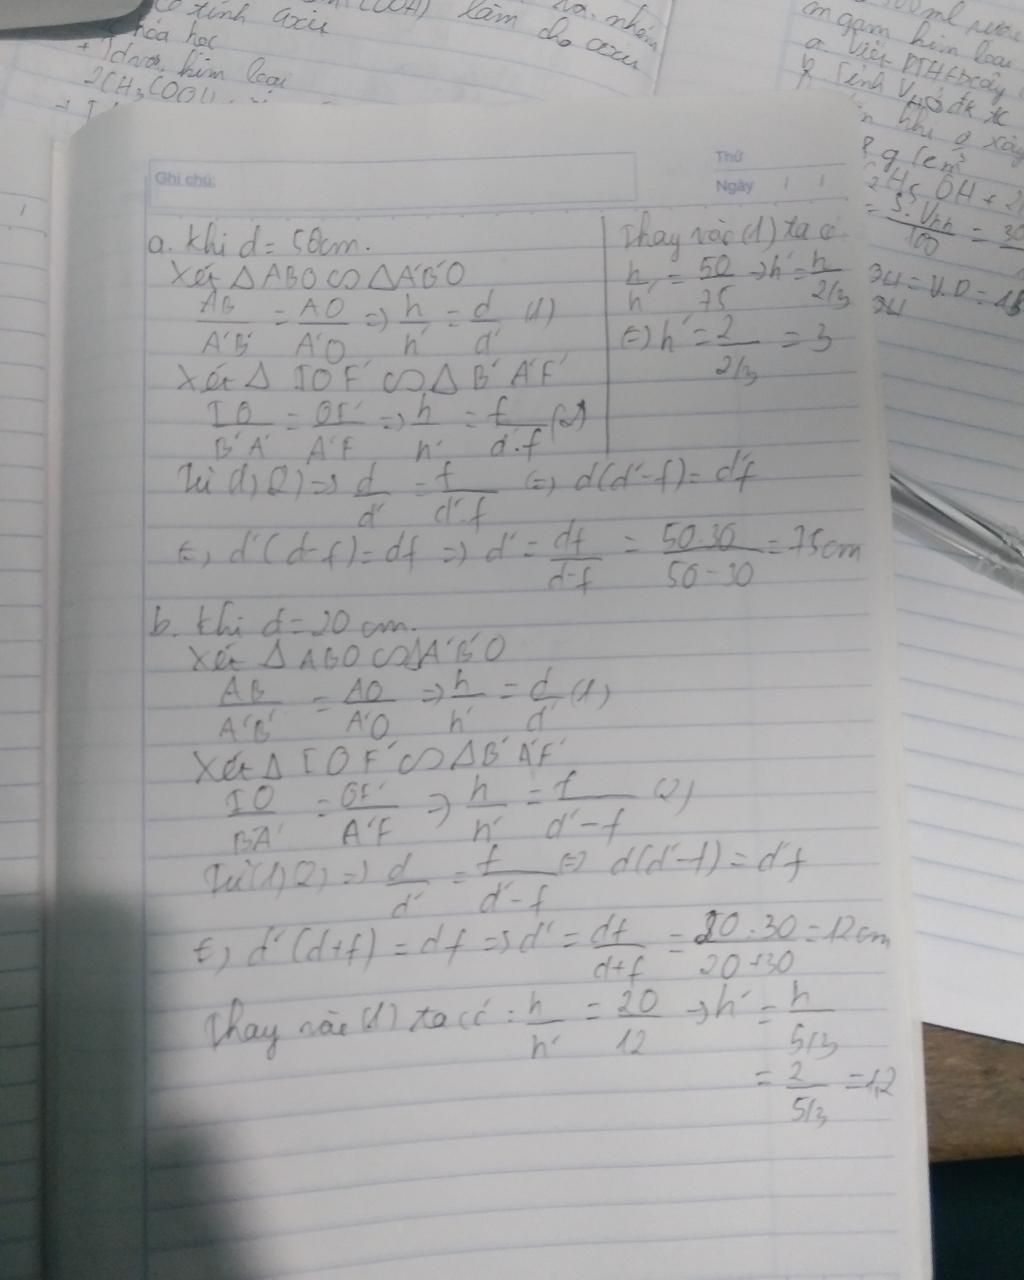 tính axit
(COOH) làm cho axit
hóa học
kim loại
2CH₃COOH
a. Viết PTHH
Ghi chú:
Thứ
Ngày / /
a. Khi d = 50cm.
Xét Δ ABO ∽ Δ A'B'O
AB/A'B' = AO/A'O => h/h' = d/d' (1)
Xét Δ IOF' ∽ Δ B'A'F'
IO/B'A' = OF'/A'F => h/h' = f/d'-f (2)
Từ (1)(2) => d/d' = f/d'-f (=) d(d'-f) = d'f
(=) d'(d-f) = df => d' = df/d-f = 50.30/50-30 = 75cm
Thay vào (1) ta có
h/h' = 50/75 => h' = h/2/3
(=) h' = 2/2/3 = 3
b. Khi d = 20 cm.
Xét Δ ABO ∽ Δ A'B'O
AB/A'B' = AO/A'O => h/h' = d/d' (1)
Xét Δ IOF' ∽ Δ B'A'F'
IO/BA' = OF'/A'F => h/h' = f/d'-f (2)
Từ (1)(2) => d/d' = f/d'-f (=) d(d'-f) = d'f
(=) d'(d+f) = df => d' = df/d+f = 20.30/20+30 = 12cm
Thay vào (1) ta có : h/h' = 20/12 => h' = h/5/3
= 2/5/3 = 1,2